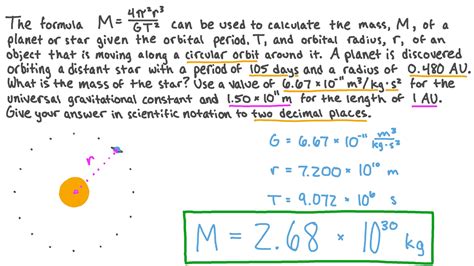 The formula M = 4π²r³/GT² can be used to calculate the mass, M, of a
planet or star given the orbital period, T, and orbital radius, r, of an
object that is moving along a circular orbit around it. A planet is discovered
orbiting a distant star with a period of 105 days and a radius of 0.480 AU.
What is the mass of the star? Use a value of 6.67×10⁻¹¹ m³/kg·s² for the
universal gravitational constant and 1.50×10¹¹ m for the length of 1 AU.
Give your answer in scientific notation to two decimal places.
r
G = 6.67×10⁻¹¹ m³/kg·s²
r = 7.200×10¹⁰ m
T = 9.072×10⁶ s
M = 2.68 × 10³⁰ kg